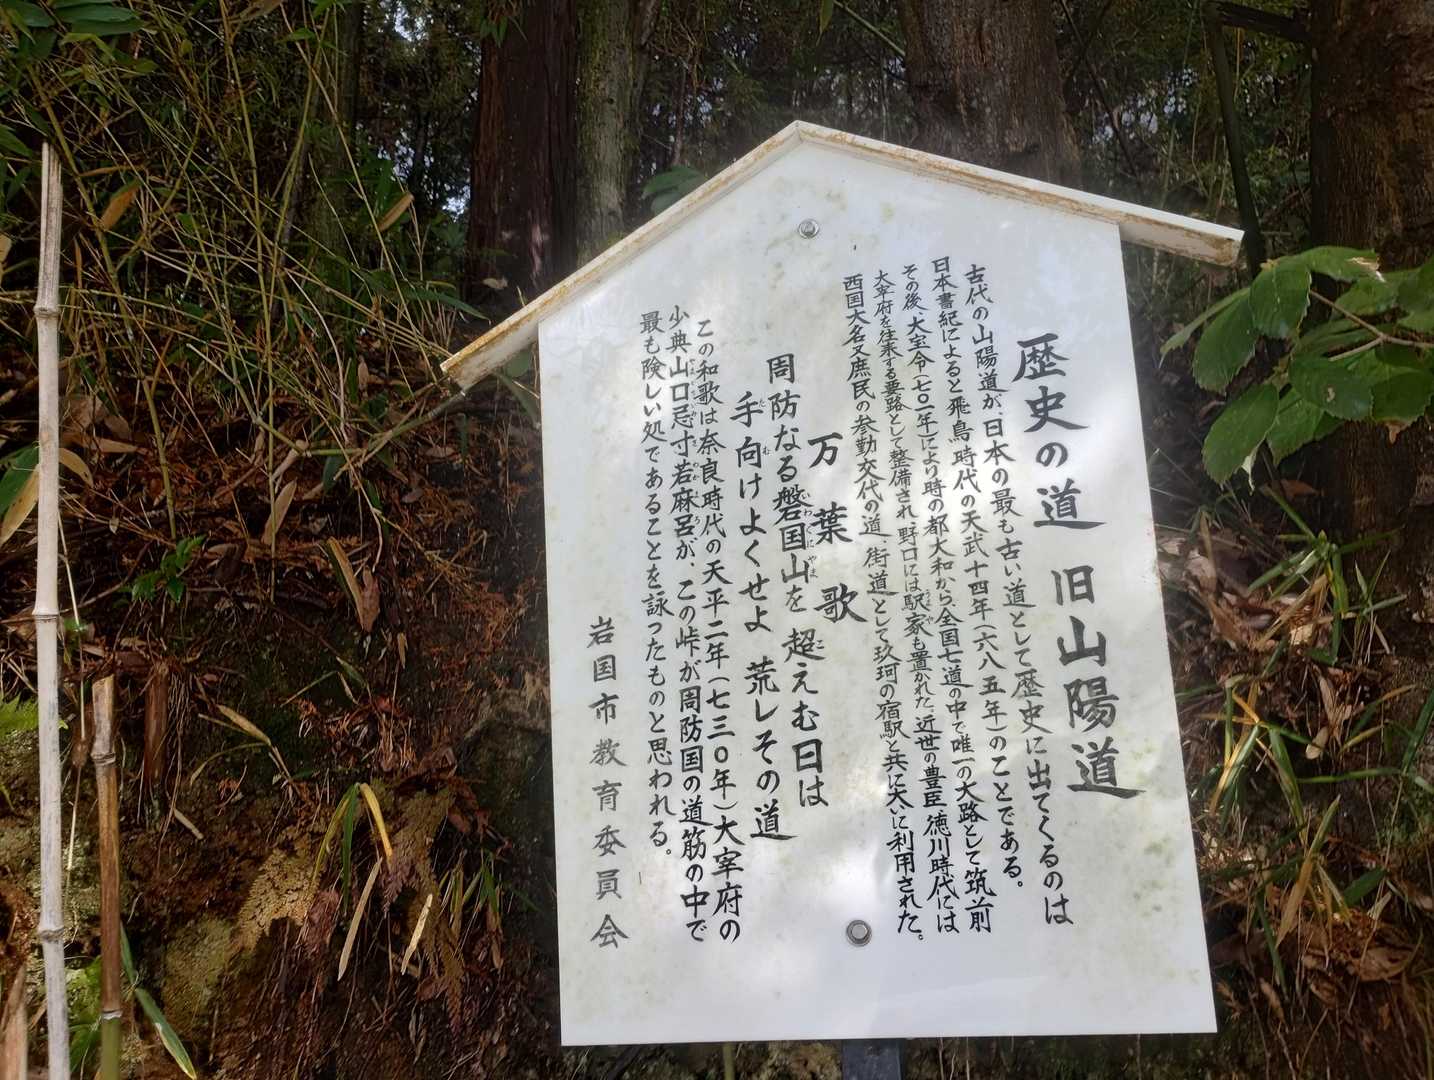 歴史の道　旧山陽道
古代の山陽道が、日本の最も古い道として歴史に出てくるのは
日本書紀によると飛鳥時代の天武十四年（六八五年）のことである。
その後、大宝令（七〇一年）により時の都大和から、全国七道の中で唯一の大路として筑前
大宰府を往来する要路として整備され、野口には駅家も置かれた。近世の豊臣、徳川時代には
西国大名又庶民の参勤交代の道、街道として玖珂の宿駅と共に大いに利用された。
万葉歌
周防なる磐国山を　超えむ日は
手向けよくせよ　荒しその道
この和歌は奈良時代の天平二年（七三〇年）大宰府の
少典山口忌寸若麻呂が、この峠が周防国の道筋の中で
最も険しい処であることを詠ったものと思われる。
岩国市教育委員会